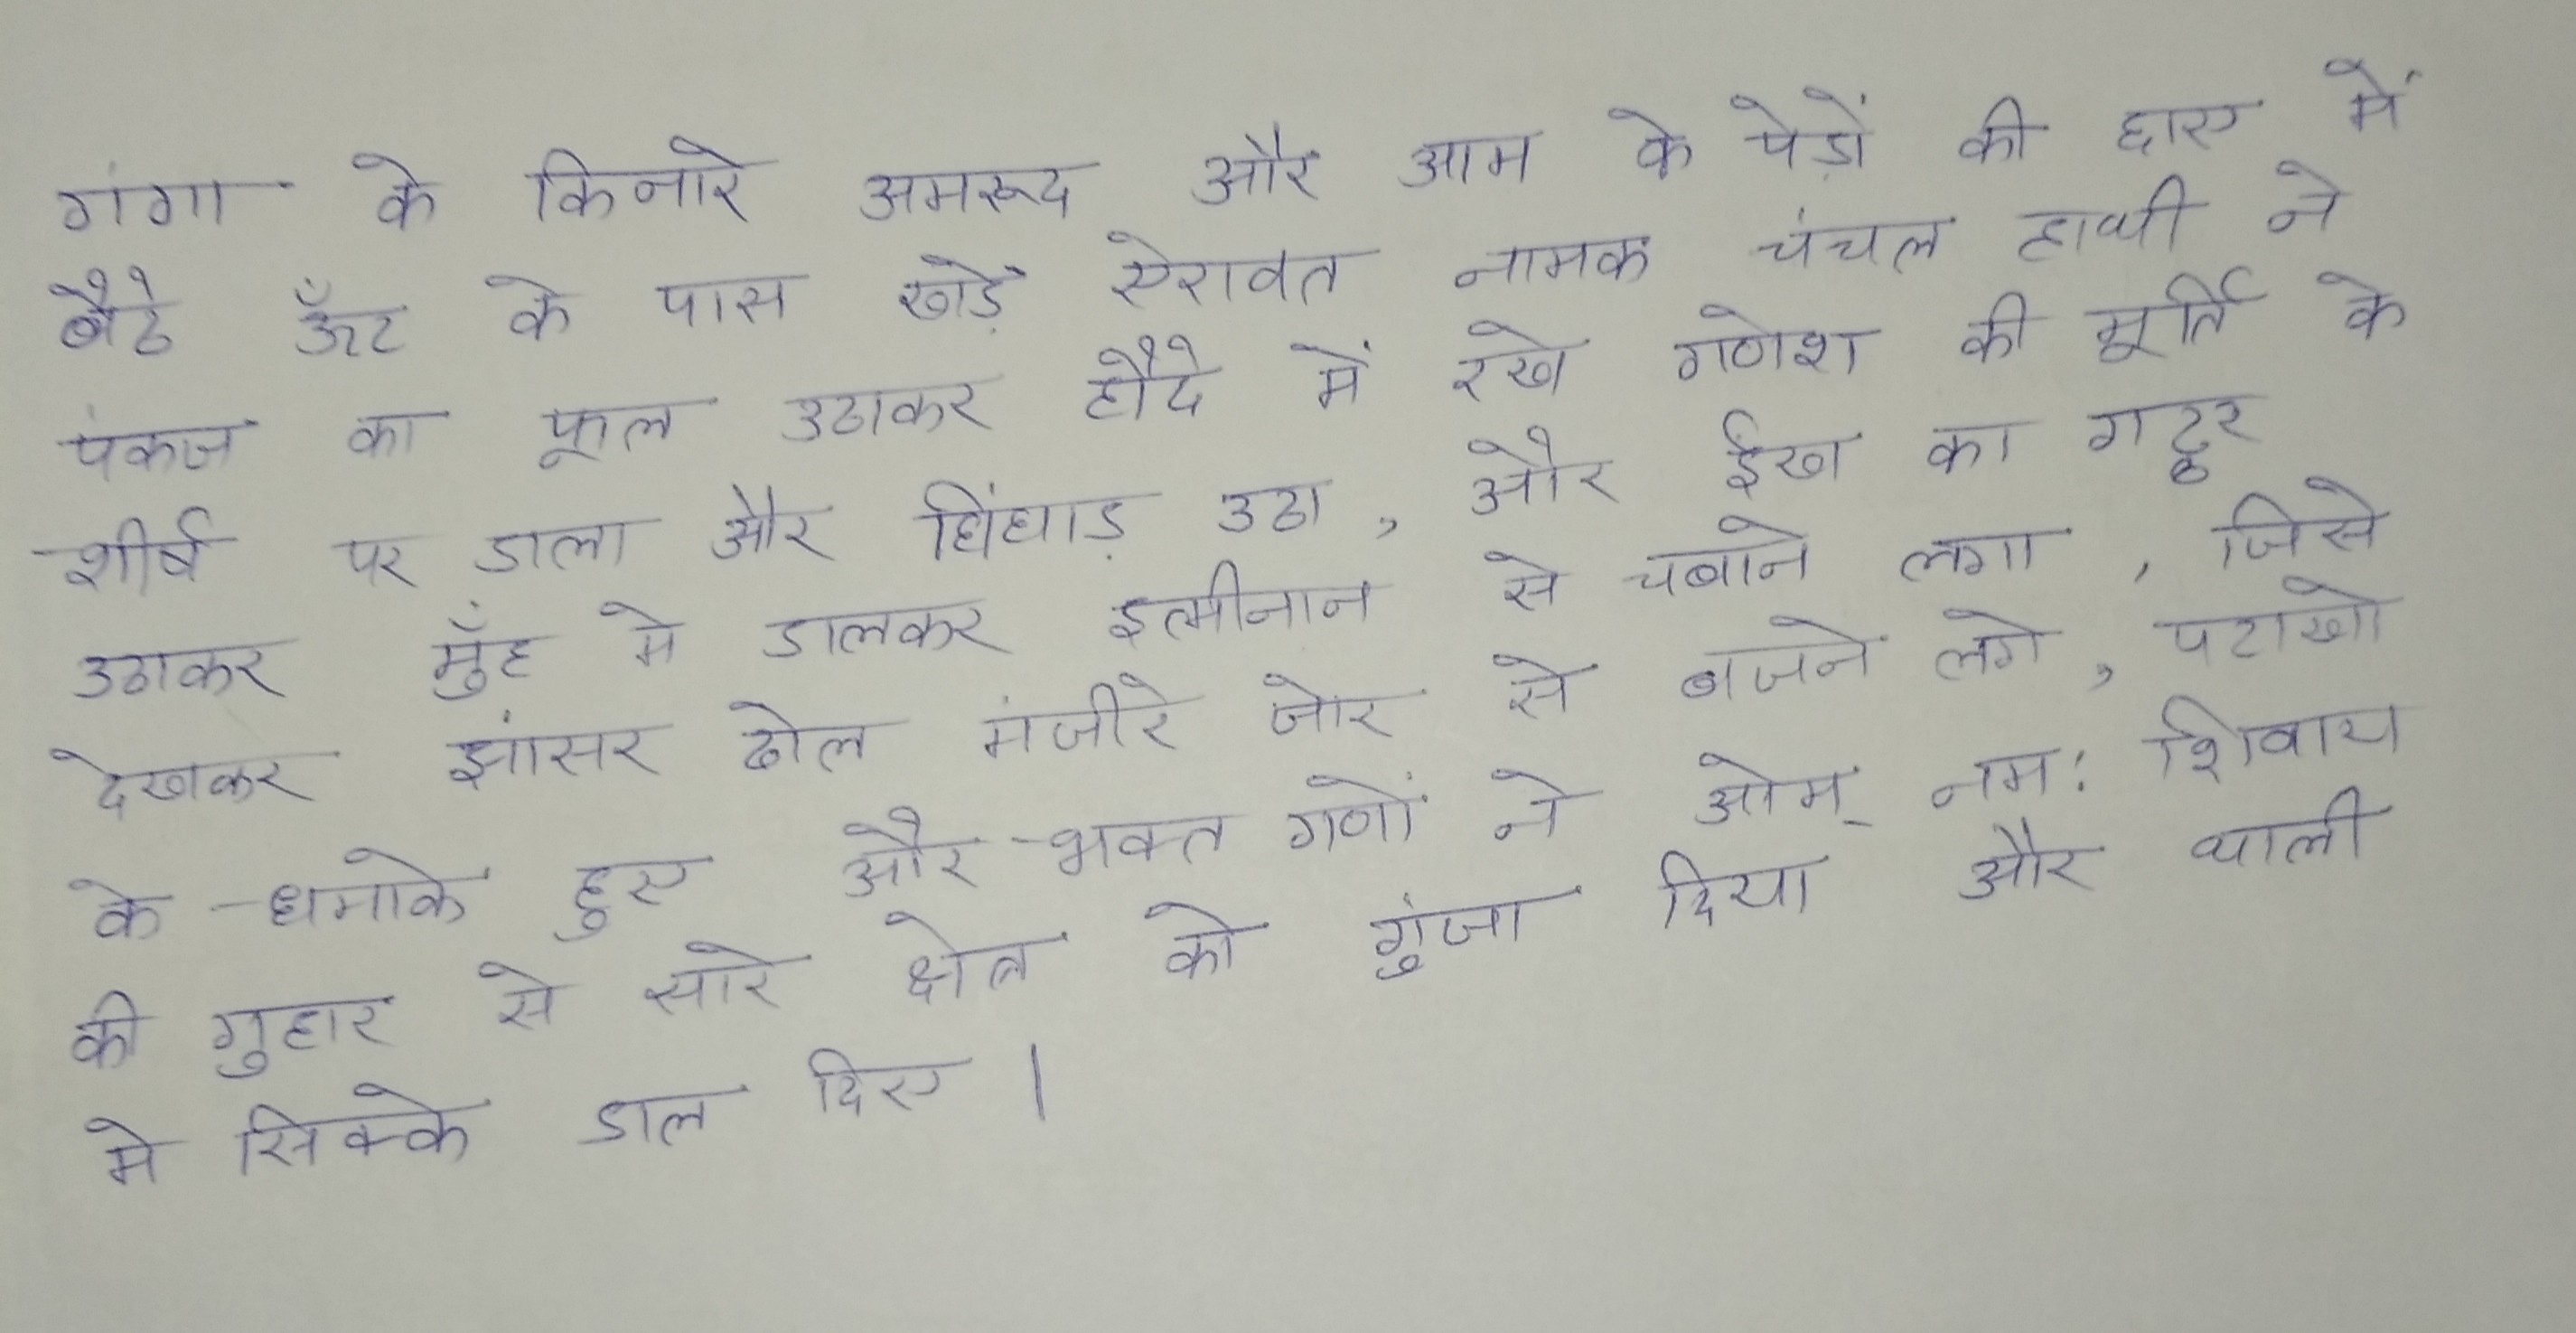 गंगा के किनारे अमरूद और आम के पेड़ों की छाए में
बैठे ऊँट के पास खड़े ऐरावत नामक चंचल हाथी ने
पंकज का फूल उठाकर हौदे में रखे गणेश की मूर्ति के
शीर्ष पर डाला और घिंघाड़ उठा, और ईख का गट्ठर
उठाकर मुँह मे डालकर इत्मीनान से चबाने लगा, जिसे
देखकर झांसर ढोल मंजीरे जोर से बजने लगे, पटाखो
के धमाके हुए और भक्त गणों ने ओम् नम: शिवाय
की गुहार से सारे क्षेत्र को गुंजा दिया और थाली
मे सिक्के डाल दिए।